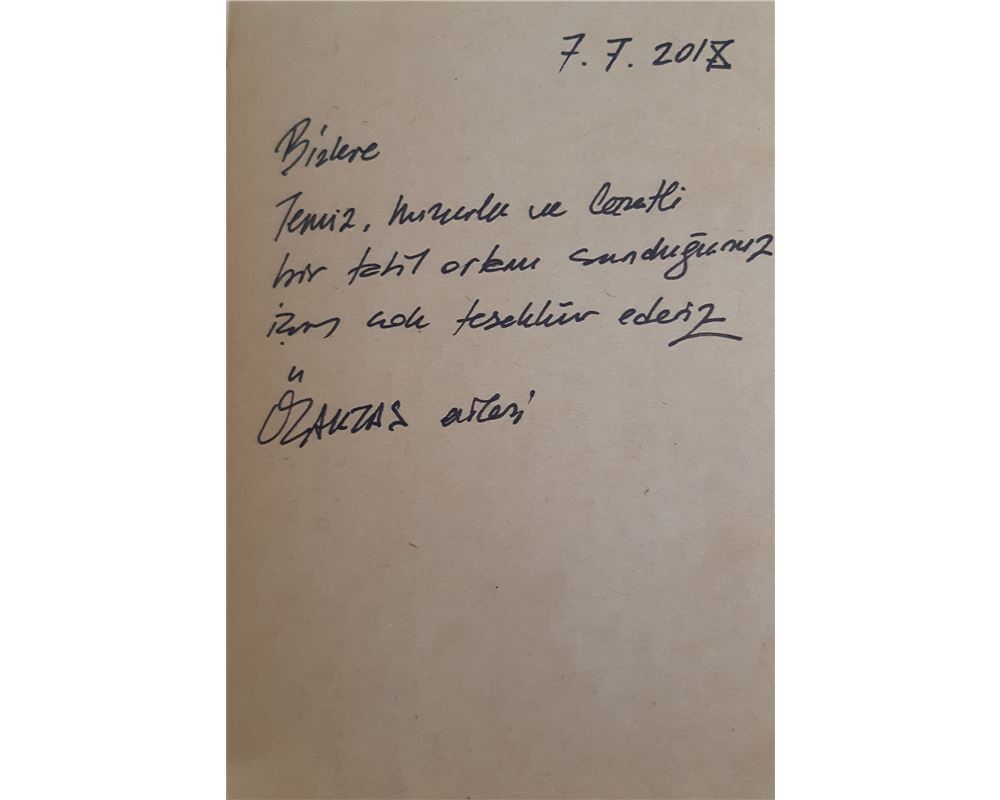 7.7.2018
Bizlere
Temiz, huzurlu ve lezzetli
bir tatil ortamı sunduğunuz
için çok teşekkür ederiz
ÖZAKTAŞ ailesi